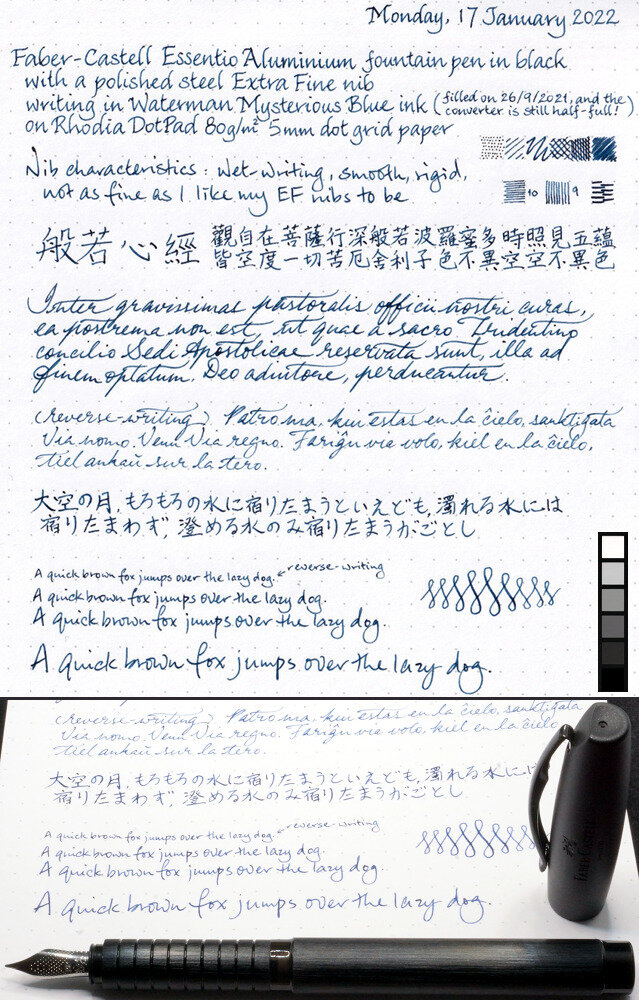 Monday, 17 January 2022
Faber-Castell Essentio Aluminium fountain pen in black
with a polished steel Extra Fine nib
writing in Waterman Mysterious Blue ink (filled on 26/9/2021, and the
converter is still half-full!)
on Rhodia DotPad 80g/m² 5mm dot grid paper
Nib characteristics: wet-writing, smooth, rigid,
not as fine as I like my EF nibs to be
10 9
般若心經
觀自在菩薩行深般若波羅蜜多時照見五蘊
皆空度一切苦厄舍利子色不異空空不異色
Inter gravissimas pastoralis officii nostri curas,
ea postrema non est, ut quae a sacro Tridentino
concilio Sedi Apostolicae reservata sunt, illa ad
finem optatum, Deo adiutore, perducantur.
(reverse-writing) Patro nia, kiu estas en la ĉielo, sanktigata
Via nomo. Venu Via regno. Fariĝu via volo, kiel en la ĉielo,
tiel ankaŭ sur la tero.
大空の月、もろもろの水に宿りたまうといえども、濁れる水には
宿りたまわず、澄める水のみ宿りたまうがごとし
A quick brown fox jumps over the lazy dog. reverse-writing
A quick brown fox jumps over the lazy dog.
A quick brown fox jumps over the lazy dog.
A quick brown fox jumps over the lazy dog.
(reverse-writing) Patro nia, kiu estas en la ĉielo, sanktigata
Via nomo. Venu Via regno. Fariĝu via volo, kiel en la ĉielo
tiel ankaŭ sur la tero.
大空の月、もろもろの水に宿りたまうといえども、濁れる水に
宿りたまわず、澄める水のみ宿りたまうがごとし
A quick brown fox jumps over the lazy dog. reverse-writing
A quick brown fox jumps over the lazy dog.
A quick brown fox jumps over the lazy dog.
A quick brown fox jumps over the lazy dog.